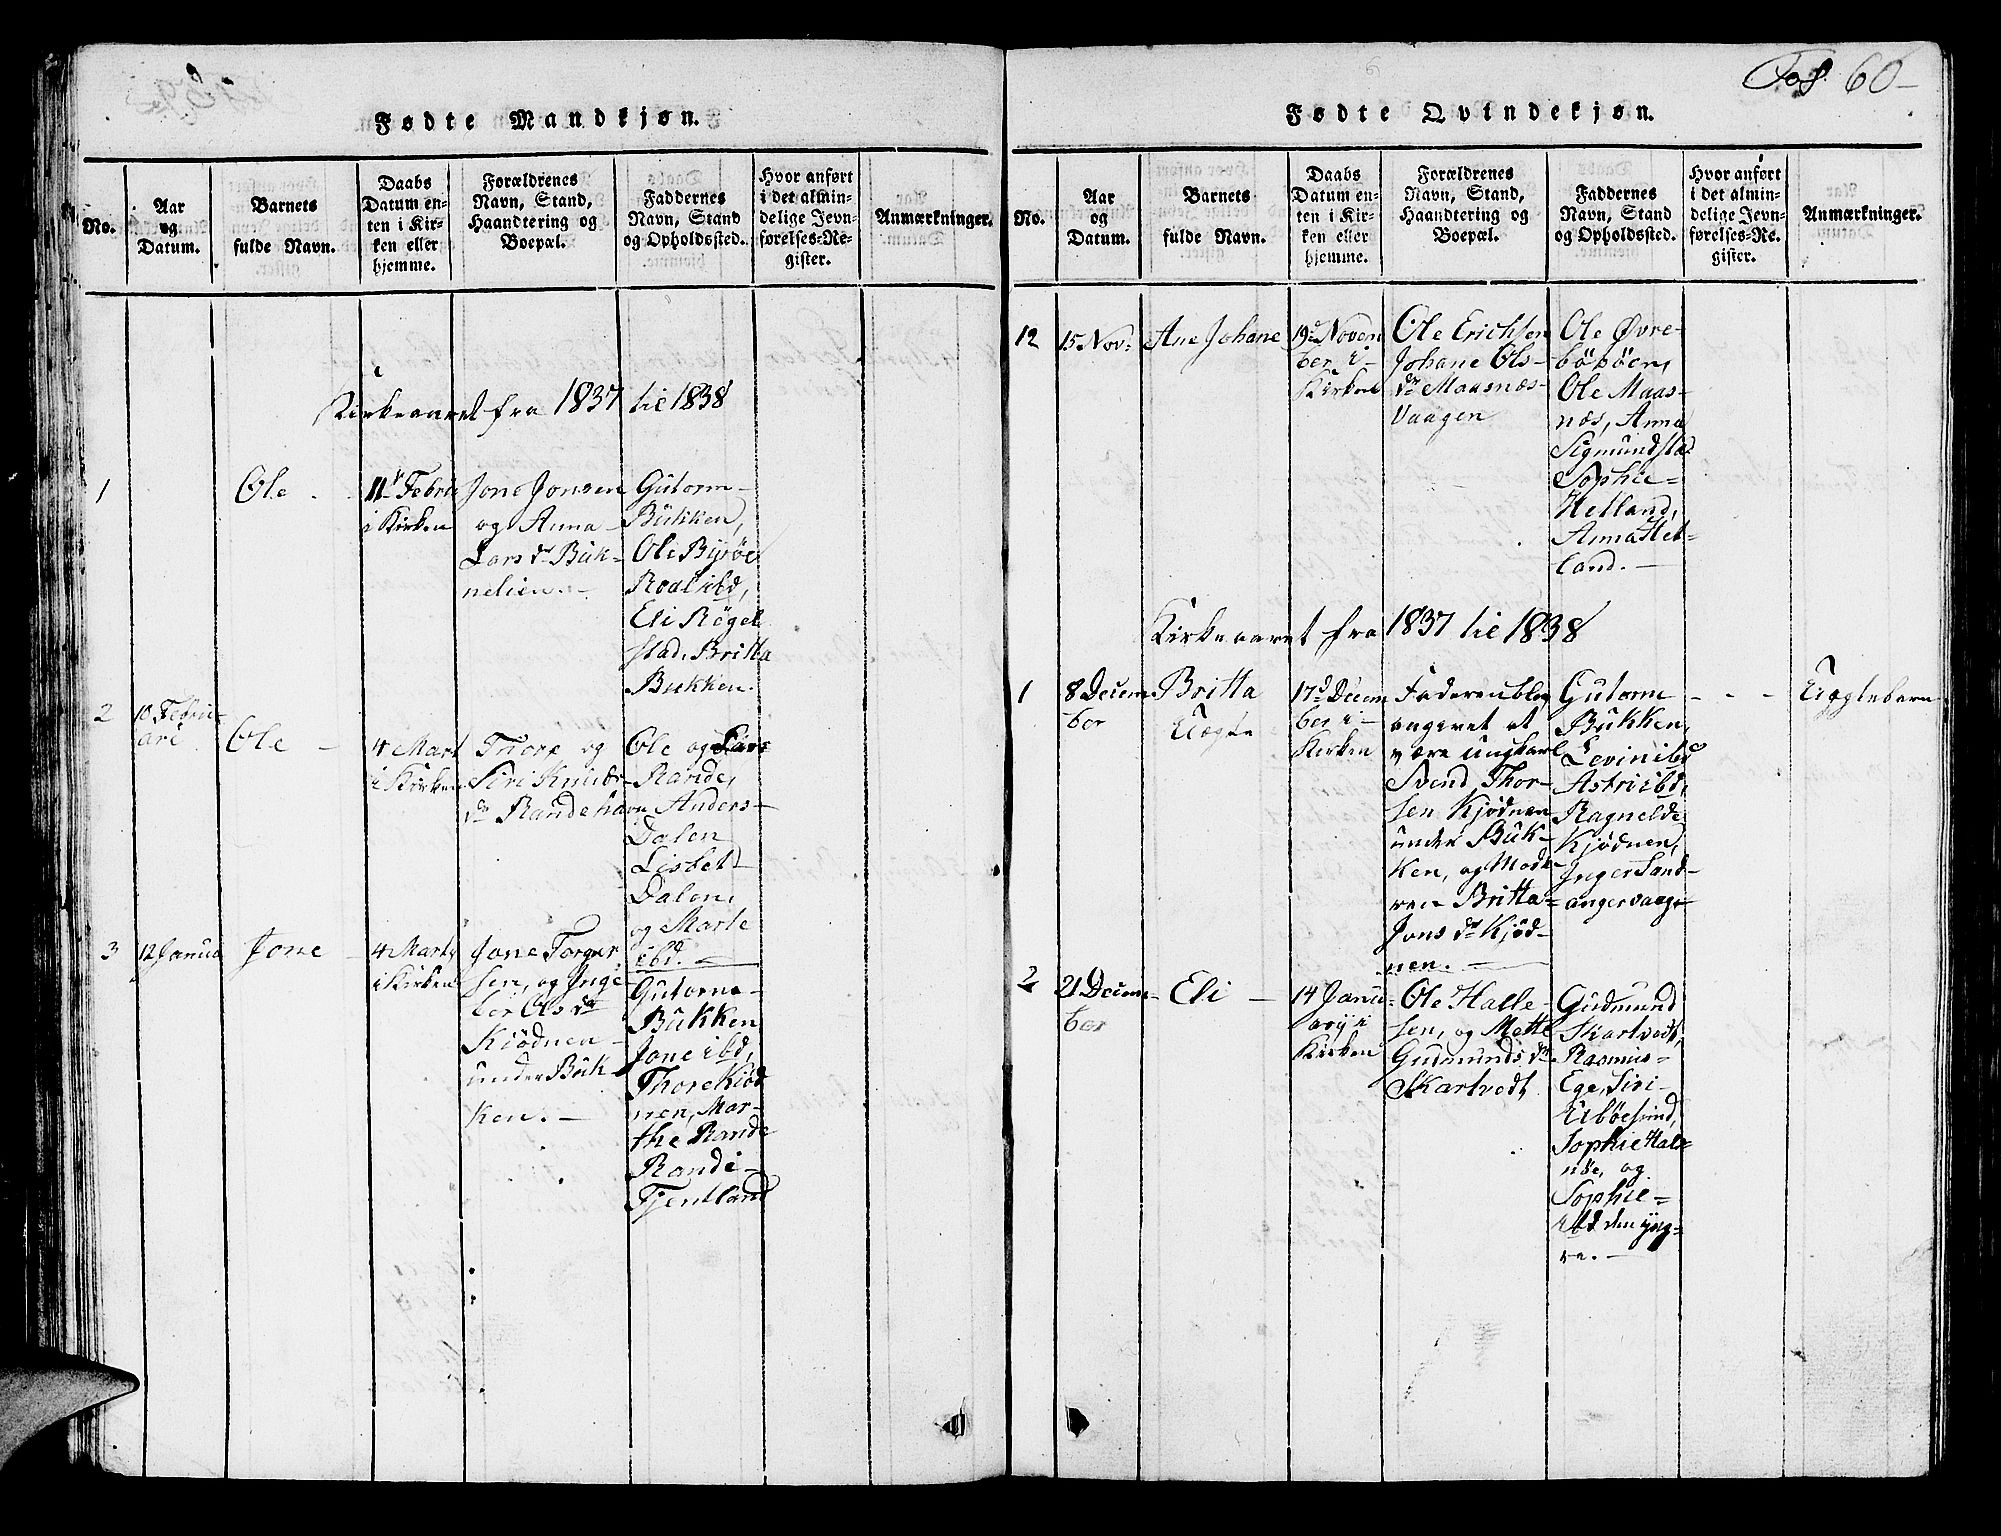 Fol. 60
Fødte Mandkjøn.
No.
Aar
og
Datum.
Barnets
fulde Navn.
Daabs
Datum en-
ten i Kir-
ken eller
hjemme.
Forældrenes
Navn, Stand,
Haandtering og
Boepæl.
Faddernes
Navn, Stand
og Opholdssted.
Hvor anført
i det almin-
delige Jevn-
førelses-Re-
gister.
Anmærkninger.
Kirkeaaret fra 1837 til 1838
1
Ole
11te Febru
i Kirken
Jone Jonsen
og Anna
Lars dr Buk-
nelien.
Gutorm
Bukken,
Ole Byøe
Roal ibd,
Eli Røgel
stad, Britta
Bukken.
2
10 Febru-
ari
Ole
4 Mart
i Kirken
Thore og
Siri Knuds-
dr Randehavn
Ole og Lars
Rande,
Anders
Dalen
Lisbet
Dalen,
og Marte
ibd.
3
12 Janua
Jone
4 Marty
i Kirken
Jone Torger
sen, og Inge
bor Ols dr
Kiødnen
under Buk-
ken.
Gutorm
Bukken
Jone ibd,
Thore Kiød
nen, Mar-
the Rande
Randi
Tjentland
Fødte Qvindekjøn.
No.
Aar
og
Datum.
Barnets
fulde Navn.
Daabs
Datum en-
ten i Kir-
ken eller
hjemme.
Forældrenes
Navn, Stand,
Haandtering og
Boepæl.
Faddernes
Navn, Stand
og Opholdssted.
Hvor anført
i det almin-
delige Jevn-
førelses-Re-
gister.
Anmærkninger.
12
15 Nov.
Ane Johane
19de Novem
ber i
Kirken
Ole Erichsen
Johane Ols-
dr Maasnæs-
Vaagen
Ole Øvre-
böböen,
Ole Maas-
næs, Anna
Sigmundstad
Sophie
Helland,
Anna Hel-
land.
Kirkeaaret fra 1837 til 1838
1
8 Decem
ber
Britta
Uægte
17d Decem
ber i
Kirken
Faderen blev
angivet at
være ungkarl
Svend Thor-
sen Kjødnen
under Buk-
ken, og Mode
ren Britta
Jons dr Kjød-
nen.
Gutorm
Bukken,
Levin ibd
Astri ibd,
Ragnelde
Kjødnen,
Inger Sand-
angervaage
Uægtebarn
2
21 Decem-
ber
Eli
14 Janu-
ary i
Kirken
Ole Halle-
sen, og Mette
Gudmunds dr
Skartvedt
Gudmund
Skartvedt,
Rasmus
Ege, Siri
Sophie Hals-
nøe, og
Sophie
ibd den yng-
re.